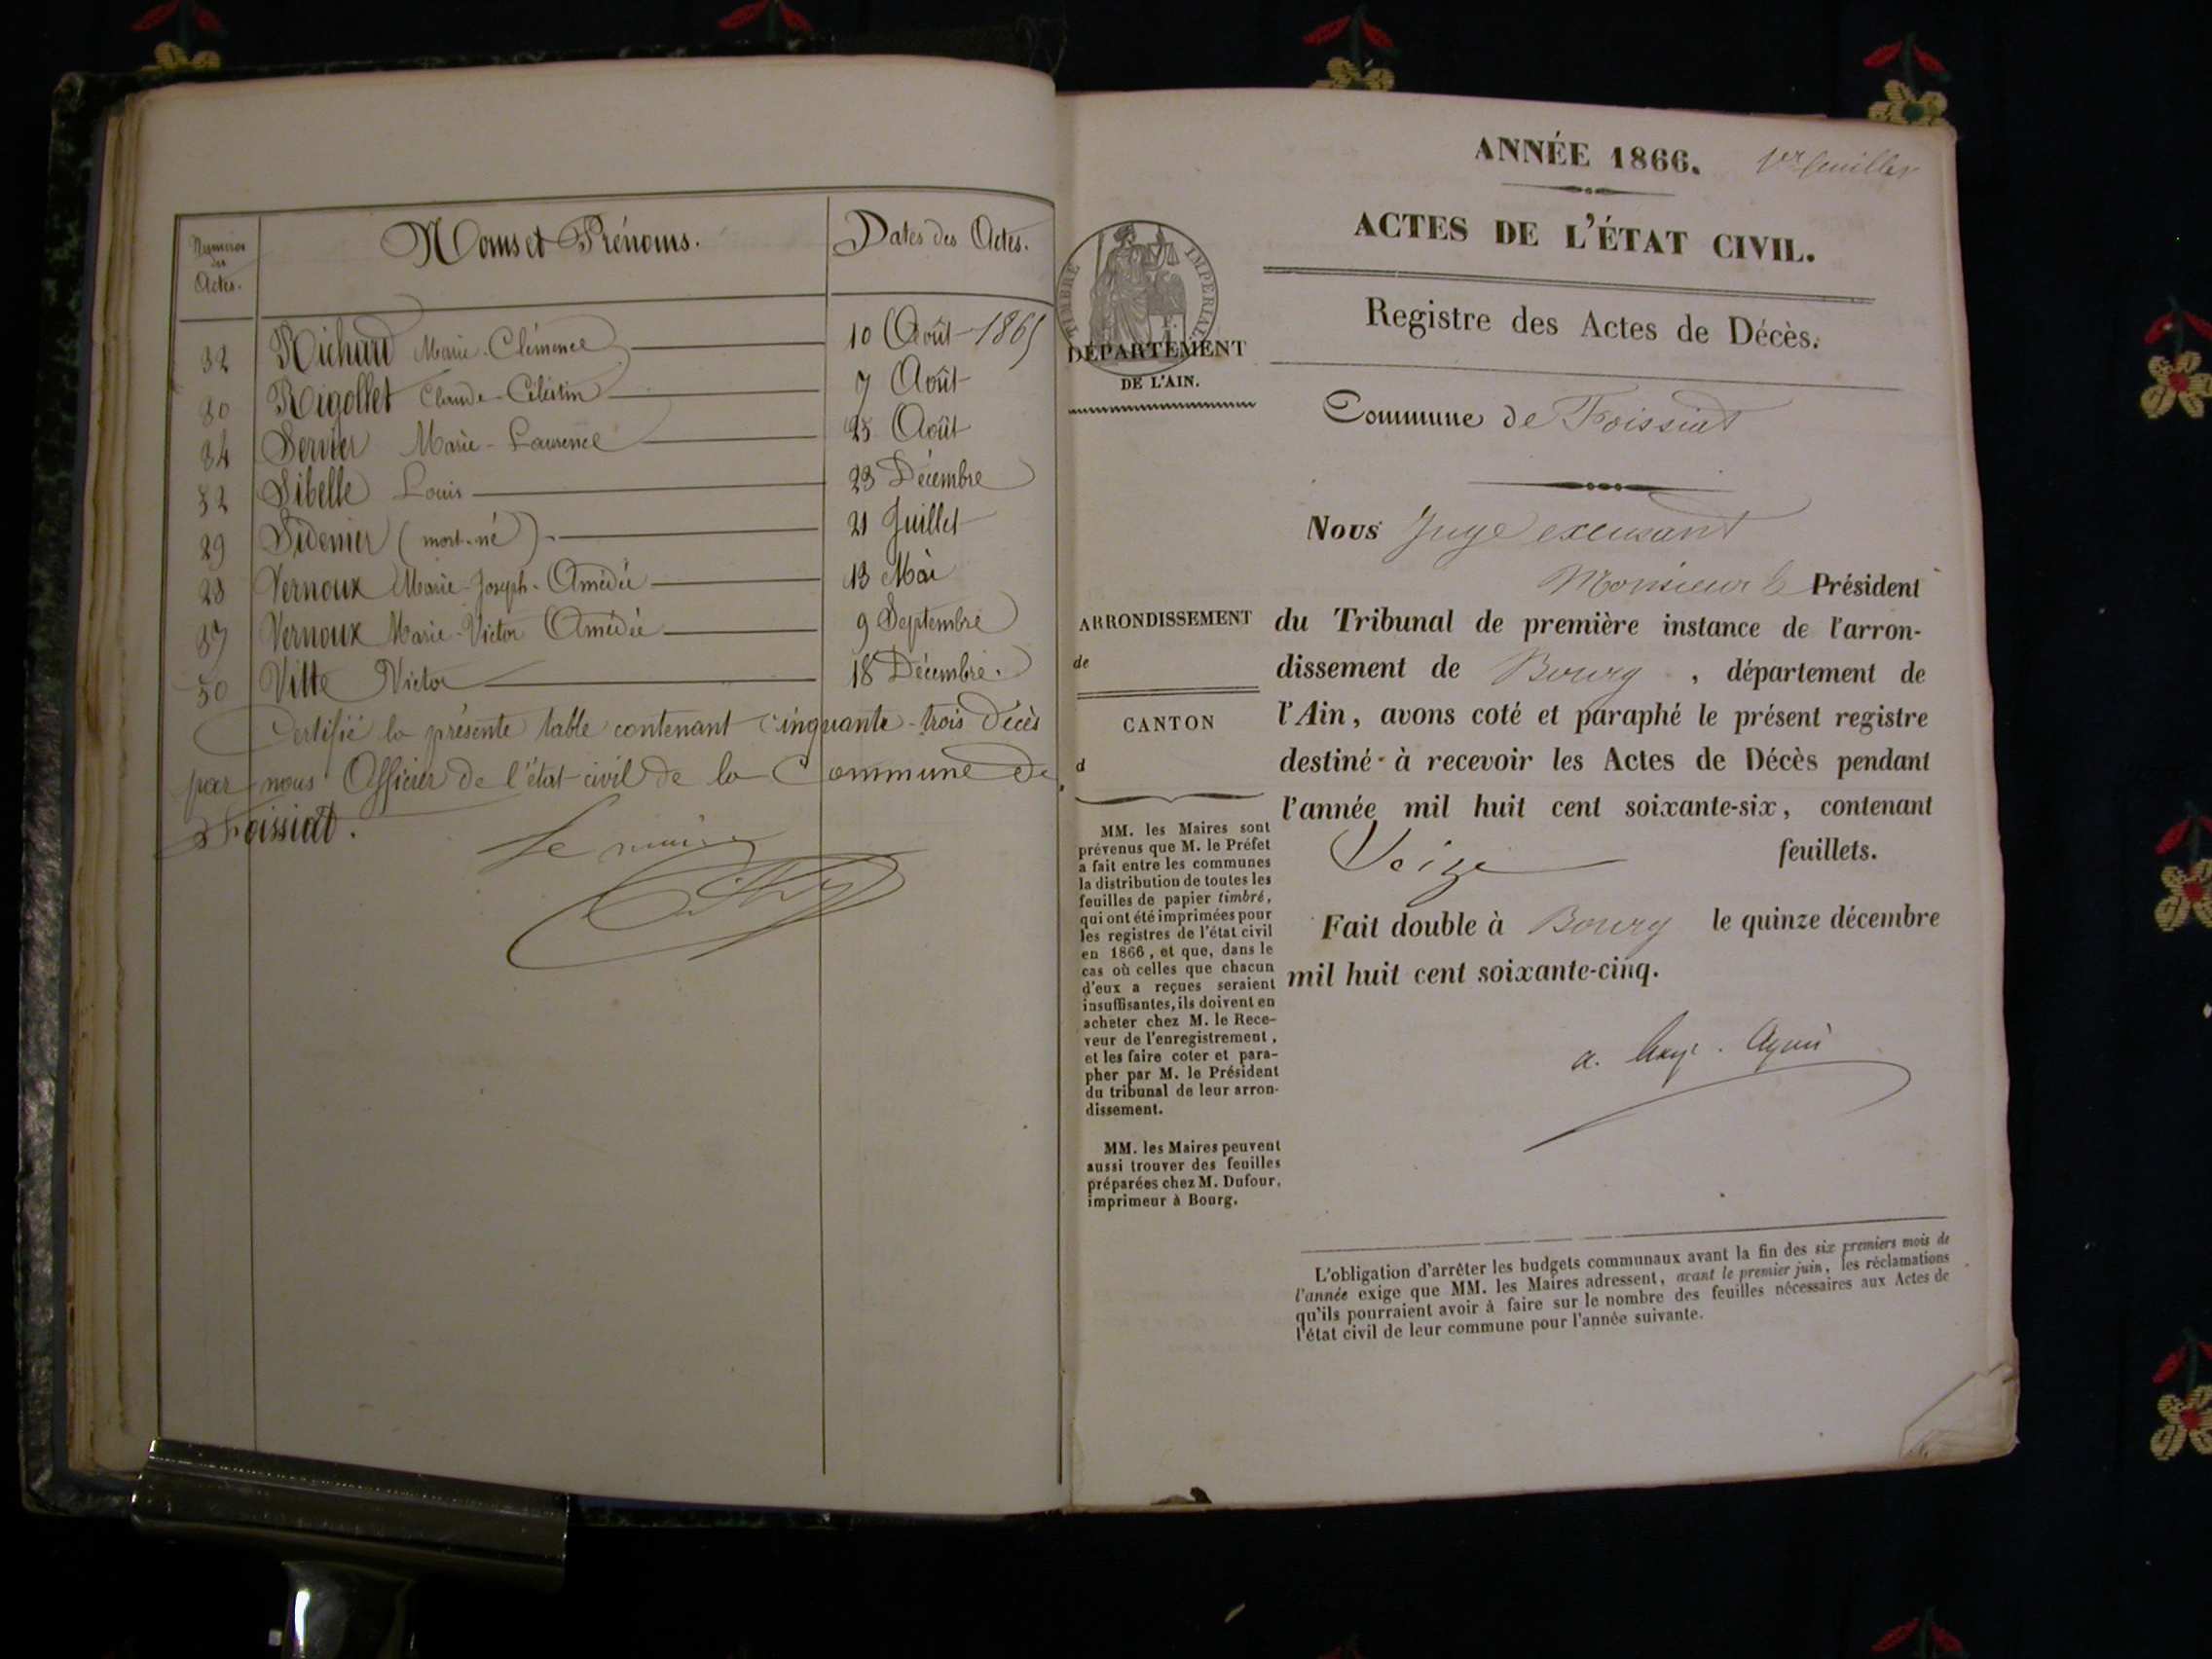 Numéros des Actes.
Noms et Prénoms.
Dates des Actes.
32 Richard Marie-Clémence 10 Août 1865
30 Rigollet Claude-Célestin 7 Août
34 Servier Marie-Laurence 25 Août
52 Sibelle Louis 23 Décembre
29 Sidenier (mort-né). 21 Juillet
23 Vernoux Marie-Joseph-Amédée 13 Mai
37 Vernoux Marie-Victor Amédée 9 Septembre
50 Vitte Victor 18 Décembre.
Certifié la présente table contenant cinquante-trois décès
par nous Officier de l'état-civil de la Commune de
Foissiat.
Le maire
ANNÉE 1866.
1er feuillet
ACTES DE L'ÉTAT CIVIL.
Registre des Actes de Décès.
TIMBRE IMPÉRIAL
DÉPARTEMENT
DE L'AIN.
Commune de Foissiat
Nous Juge excusant
Monsieur le Président
ARRONDISSEMENT
de
CANTON
d
du Tribunal de première instance de l'arron-
dissement de Bourg, département de
l'Ain, avons coté et paraphé le présent registre
destiné à recevoir les Actes de Décès pendant
l'année mil huit cent soixante-six, contenant
Seize feuillets.
Fait double à Bourg le quinze décembre
mil huit cent soixante-cinq.
MM. les Maires sont
prévenus que M. le Préfet
a fait entre les communes
la distribution de toutes les
feuilles de papier timbré,
qui ont été imprimées pour
les registres de l'état civil
en 1866, et que, dans le
cas où celles que chacun
d'eux a reçues seraient
insuffisantes, ils doivent en
acheter chez M. le Rece-
veur de l'enregistrement,
et les faire coter et para-
pher par M. le Président
du tribunal de leur arron-
dissement.
MM. les Maires peuvent
aussi trouver des feuilles
préparées chez M. Dufour,
imprimeur à Bourg.
L'obligation d'arrêter les budgets communaux avant la fin des six premiers mois de
l'année exige que MM. les Maires adressent, avant le premier juin, les réclamations
qu'ils pourraient avoir à faire sur le nombre des feuilles nécessaires aux Actes de
l'état civil de leur commune pour l'année suivante.